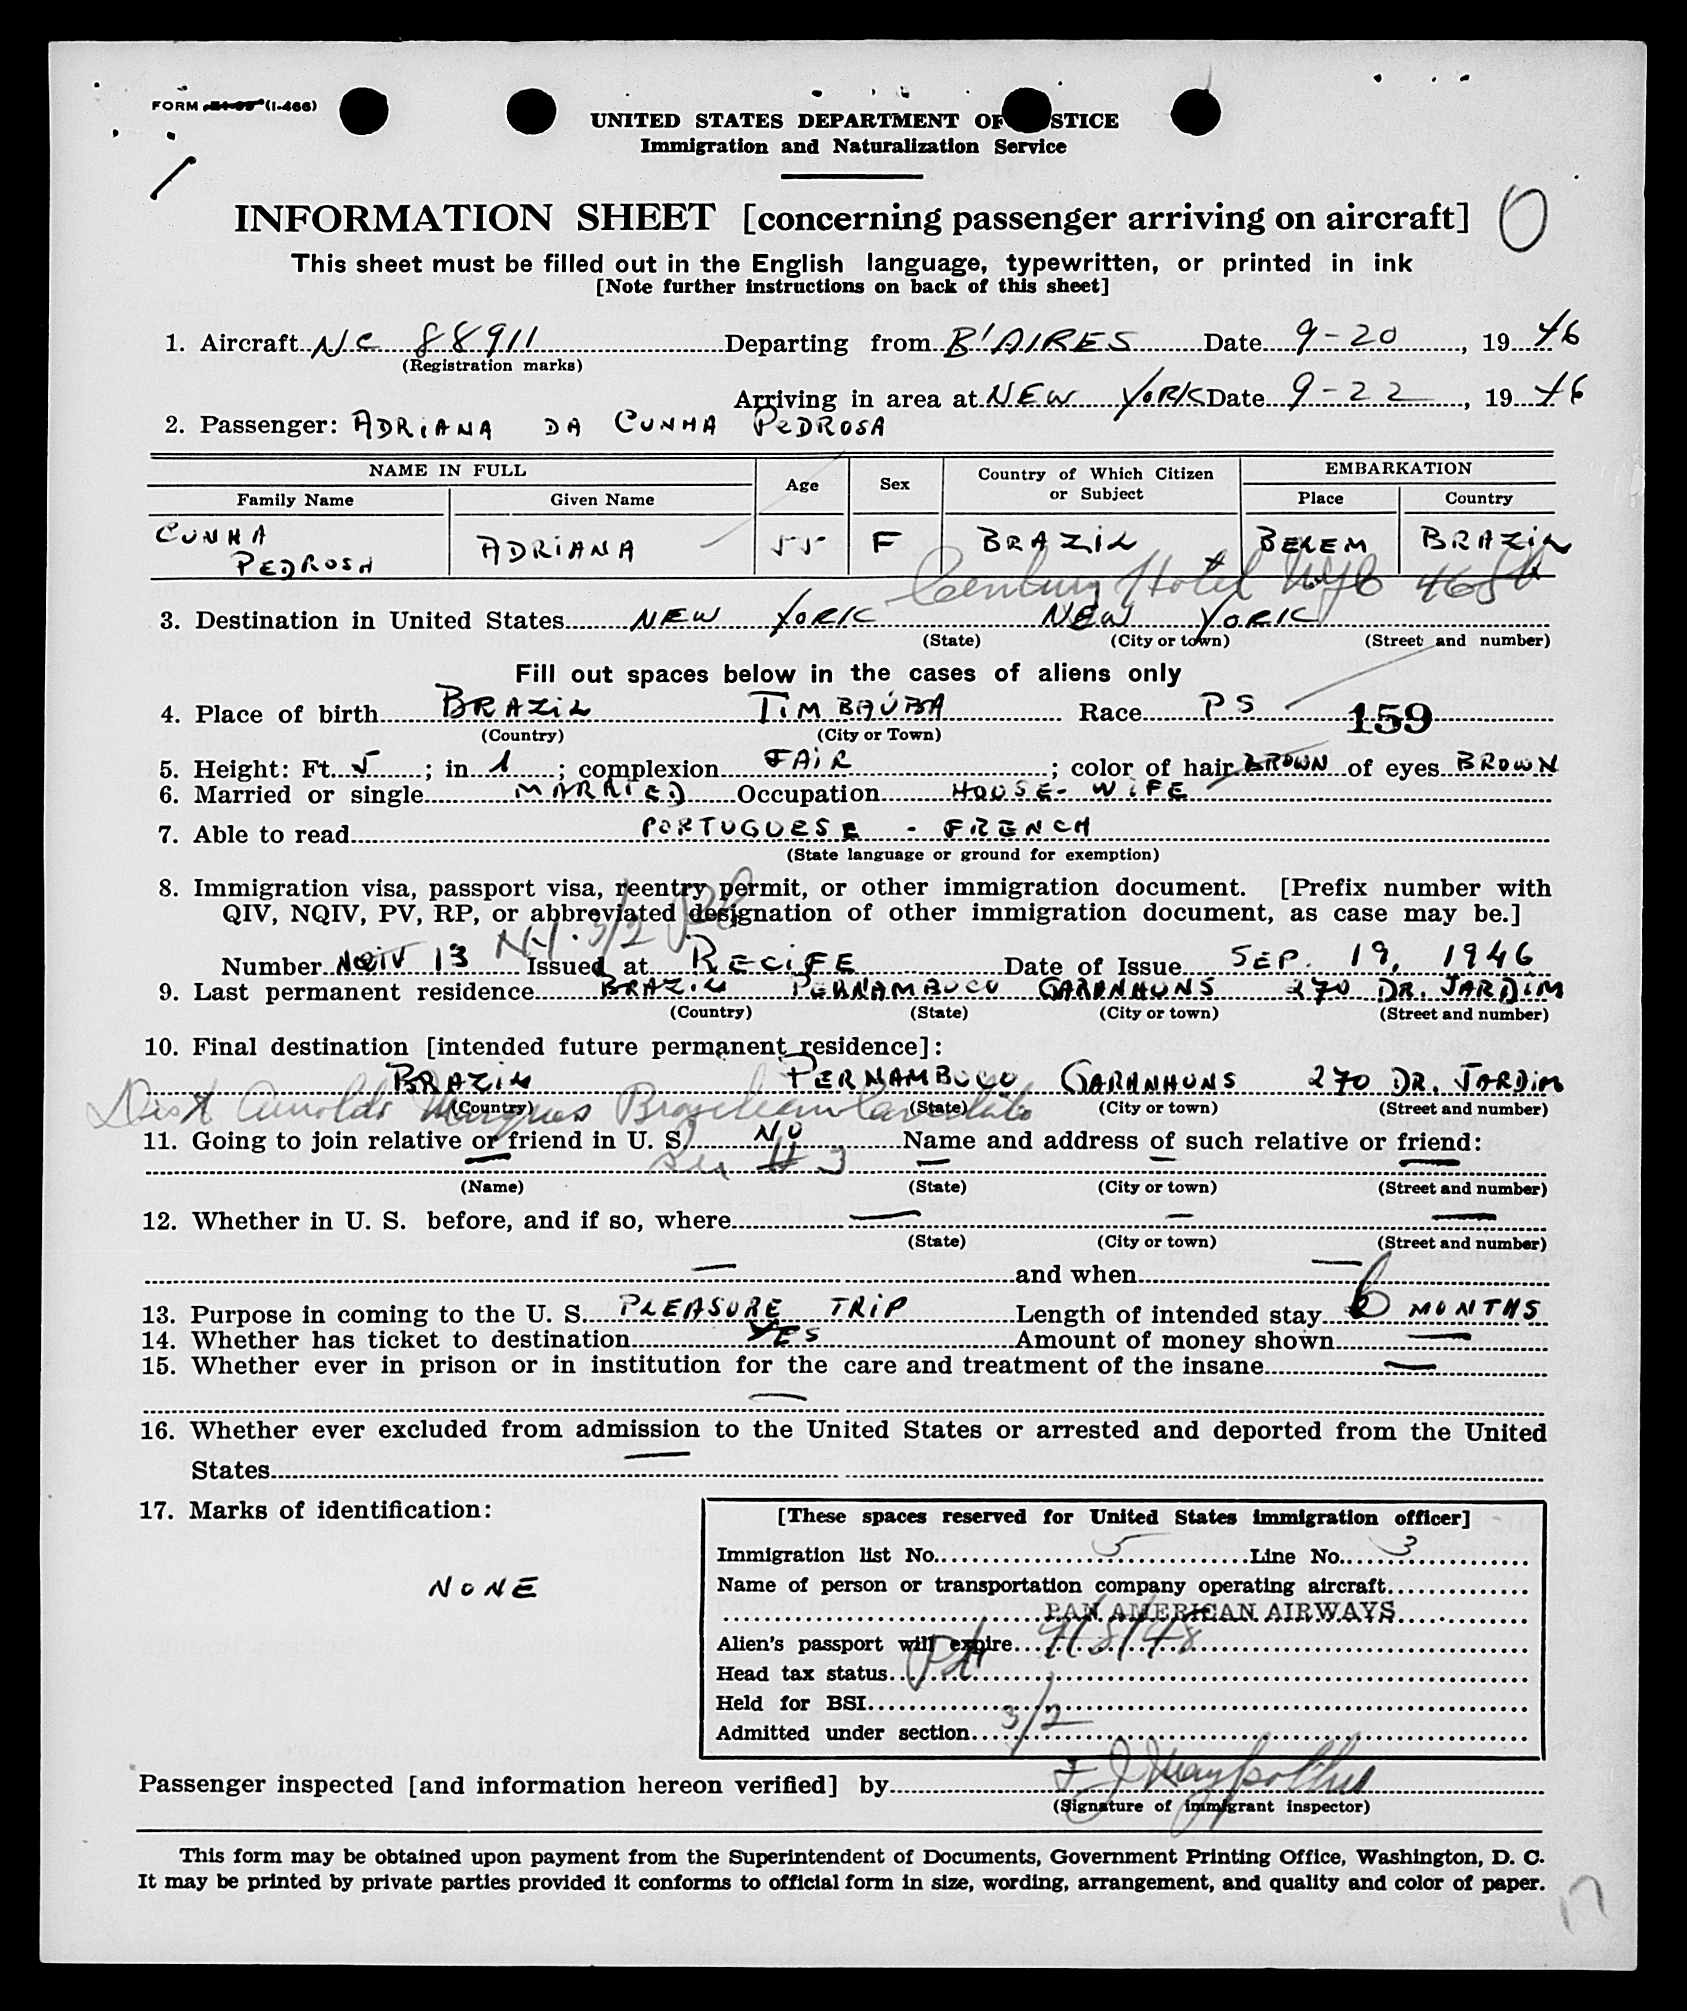 FORM (I-466)
UNITED STATES DEPARTMENT OF STICE
Immigration and Naturalization Service
INFORMATION SHEET [concerning passenger arriving on aircraft] O
This sheet must be filled out in the English language, typewritten, or printed in ink
[Note further instructions on back of this sheet]
1. Aircraft NC 88911 Departing from B'AIRES Date 9-20, 1946
(Registration marks)
Arriving in area at NEW YORK Date 9-22, 1946
2. Passenger: ADRIANA DA CUNHA PEDROSA
NAME IN FULL Age Sex Country of Which Citizen or Subject EMBARKATION
Family Name Given Name Place Country
CUNHA PEDROSA ADRIANA 55 F BRAZIL BELEM BRAZIL
Century Hotel NYC 46St
3. Destination in United States NEW YORK NEW YORK
(State) (City or town) (Street and number)
Fill out spaces below in the cases of aliens only
4. Place of birth BRAZIL TIMBAÚBA Race PS 159
(Country) (City or Town)
5. Height: Ft. 5; in. 1; complexion FAIR; color of hair BROWN of eyes BROWN
6. Married or single MARRIED Occupation HOUSE-WIFE
7. Able to read PORTUGUESE - FRENCH
(State language or ground for exemption)
8. Immigration visa, passport visa, reentry permit, or other immigration document. [Prefix number with
QIV, NQIV, PV, RP, or abbreviated designation of other immigration document, as case may be.]
N.Y. 3/2
Number NQIV 13 Issued at RECIFE Date of Issue SEP. 19, 1946
9. Last permanent residence BRAZIL PERNAMBUCO GARANHUNS 270 DR. JARDIM
(Country) (State) (City or town) (Street and number)
10. Final destination [intended future permanent residence]:
BRAZIL PERNAMBUCO GARANHUNS 270 DR. JARDIM
Arnoldo Marques
(Country) (State) (City or town) (Street and number)
11. Going to join relative or friend in U. S. NO Name and address of such relative or friend:
# 3
(Name) (State) (City or town) (Street and number)
12. Whether in U. S. before, and if so, where — — —
(State) (City or town) (Street and number)
— and when —
13. Purpose in coming to the U. S. PLEASURE TRIP Length of intended stay 6 MONTHS
14. Whether has ticket to destination YES Amount of money shown —
15. Whether ever in prison or in institution for the care and treatment of the insane —
—
16. Whether ever excluded from admission to the United States or arrested and deported from the United
States —
17. Marks of identification:
NONE
[These spaces reserved for United States immigration officer]
Immigration list No. 5 Line No. 3
Name of person or transportation company operating aircraft
PAN AMERICAN AIRWAYS
Alien's passport will expire 9/18/48
Head tax status Pd
Held for BSI
Admitted under section 3/2
Passenger inspected [and information hereon verified] by
(Signature of immigrant inspector)
This form may be obtained upon payment from the Superintendent of Documents, Government Printing Office, Washington, D. C.
It may be printed by private parties provided it conforms to official form in size, wording, arrangement, and quality and color of paper.
17